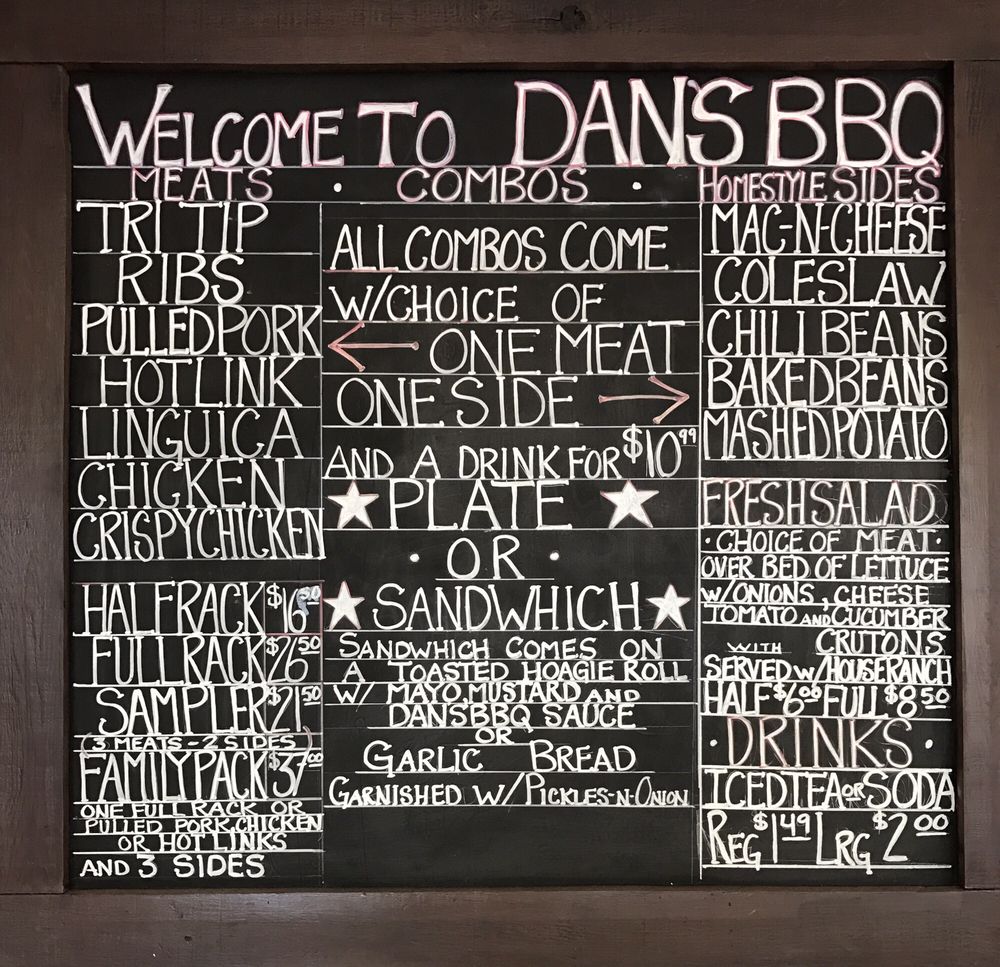 WELCOME TO DAN'S BBQ
MEATS • COMBOS • HOMESTYLE SIDES
TRI TIP
RIBS
PULLED PORK
HOT LINK
LINGUICA
CHICKEN
CRISPY CHICKEN
HALF RACK $16.50
FULL RACK $26.50
SAMPLER $21.50
(3 MEATS - 2 SIDES)
FAMILY PACK $37.00
ONE FULL RACK OR
PULLED PORK, CHICKEN
OR HOT LINKS
AND 3 SIDES
ALL COMBOS COME
W/CHOICE OF
← ONE MEAT
ONE SIDE →
AND A DRINK FOR $10.99
★ PLATE ★
• OR •
★ SANDWHICH ★
SANDWHICH COMES ON
A TOASTED HOAGIE ROLL
W/ MAYO, MUSTARD AND
DANSBBQ SAUCE
OR
GARLIC BREAD
GARNISHED W/PICKLES-N-ONION
MAC-N-CHEESE
COLESLAW
CHILI BEANS
BAKED BEANS
MASHED POTATO
FRESH SALAD
• CHOICE OF MEAT •
OVER BED OF LETTUCE
W/ONIONS, CHEESE
TOMATO AND CUCUMBER
WITH CRUTONS
SERVED W/HOUSE RANCH
HALF $6.00 FULL $8.50
• DRINKS •
ICED TEA OR SODA
REG $1.49 LRG $2.00